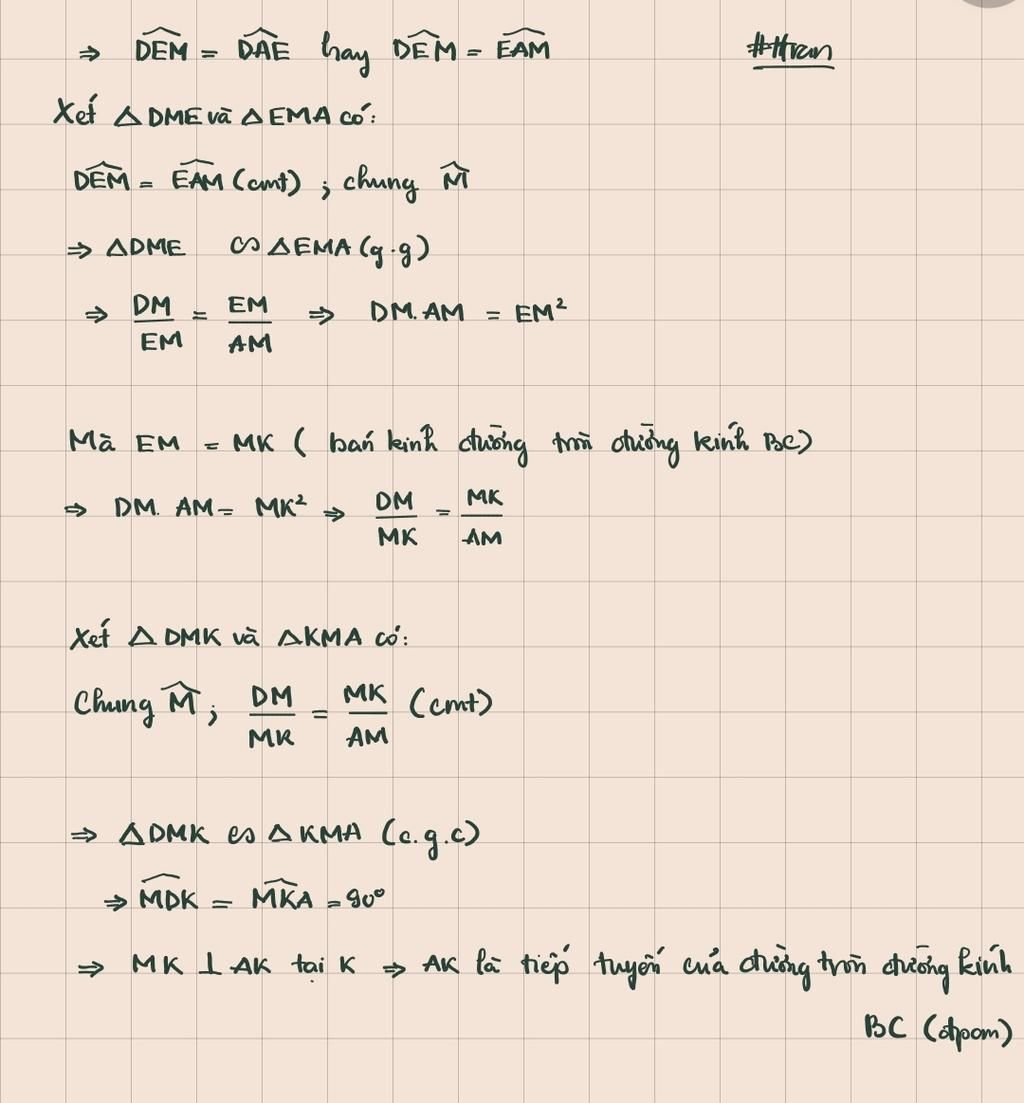 ⇒ DEM = DAE hay DEM = EAM
##Tran
Xét ΔDME và ΔEMA có:
DEM = EAM (cmt) ; chung M
⇒ ΔDME ∽ ΔEMA (g.g)
⇒ DM/EM = EM/AM ⇒ DM.AM = EM²
Mà EM = MK ( bán kính đường tròn đường kính BC)
⇒ DM. AM = MK² ⇒ DM/MK = MK/AM
Xét ΔDMK và ΔKMA có:
Chung M ; DM/MK = MK/AM (cmt)
⇒ ΔDMK ∽ ΔKMA (c.g.c)
⇒ MDK = MKA = 90°
⇒ MK ⊥ AK tại K ⇒ AK là tiếp tuyến của đường tròn đường kính
BC (đpcm)